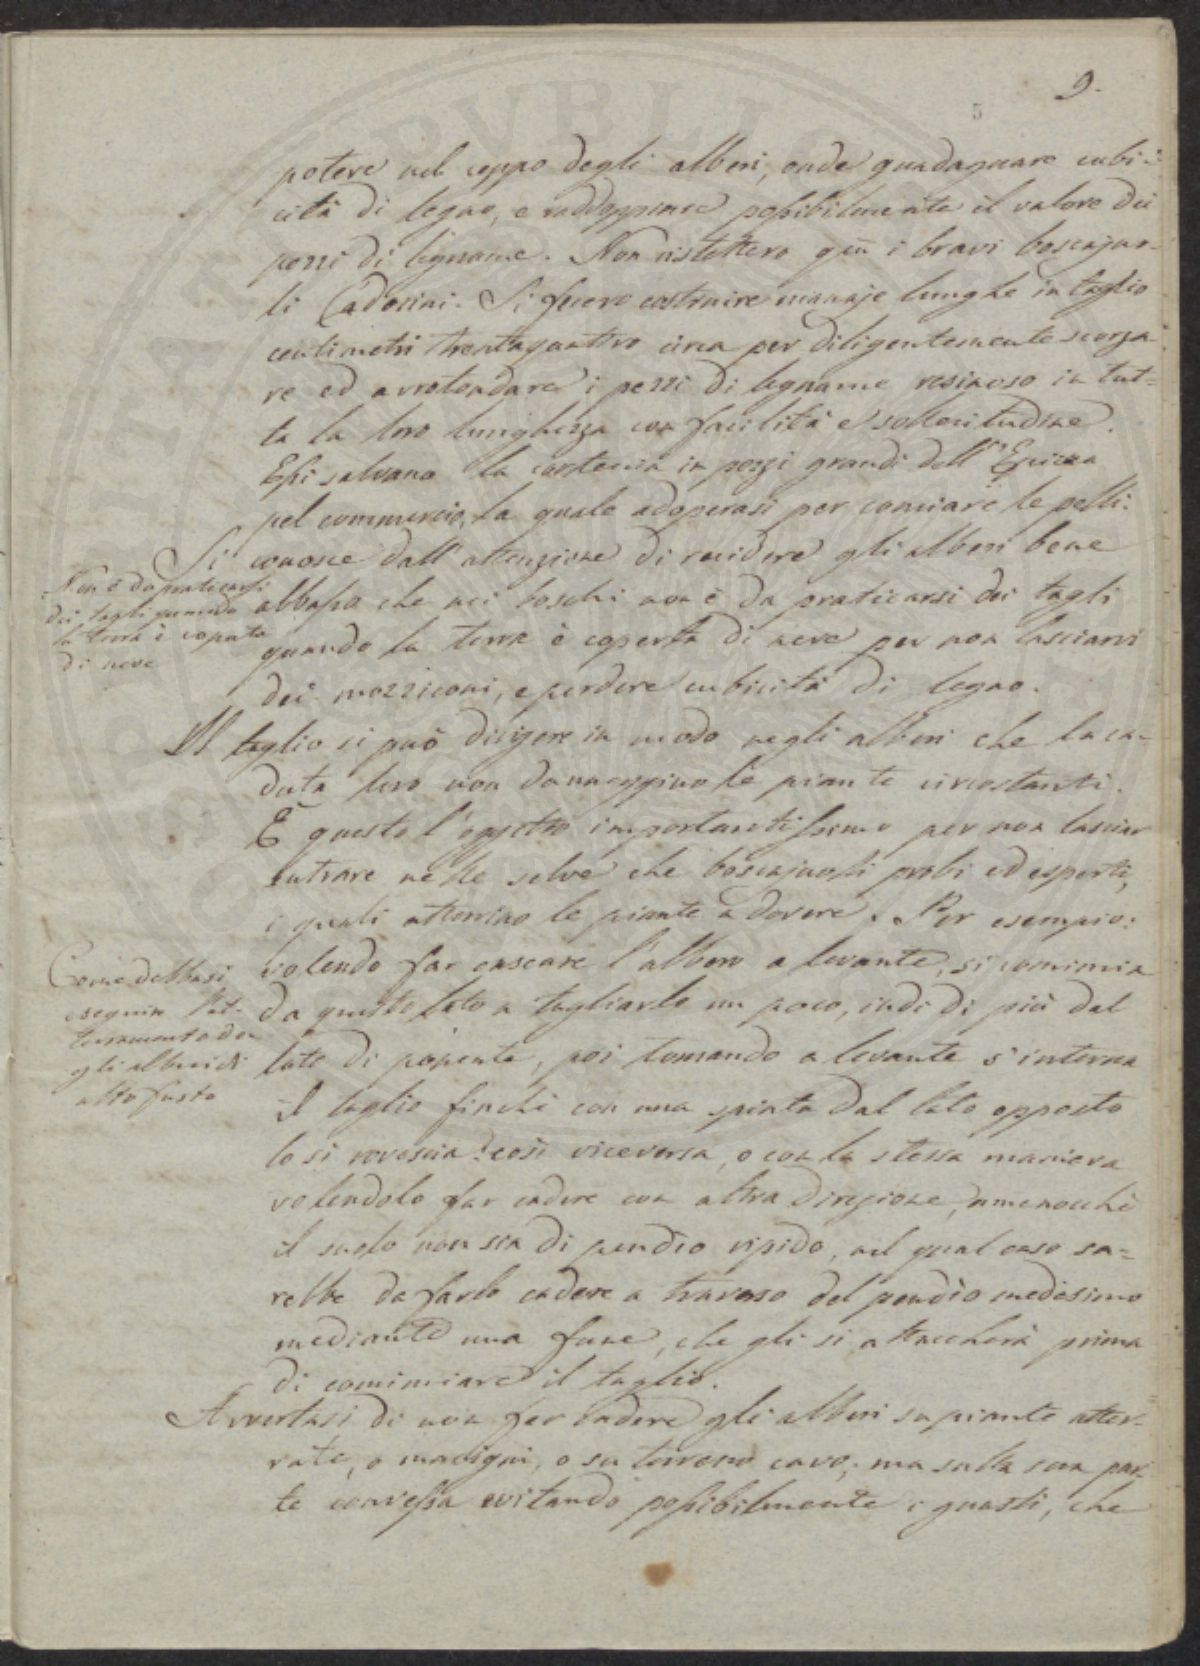 9.
potere nel ceppo degli alberi, onde guadagnare cubi-
cità di legno, e raddoppiare possibilmente il valore dei
pezzi di legname. Non ristettero quì i bravi boscajuo-
li Cadorini. Si fecero costruire manaje lunghe in taglio
centimetri trentaquattro circa per diligentemente scorza-
re ed arrotondare i pezzi di legname resinoso in tut-
ta la loro lunghezza con facilità e sollecitudine.
Essi salvano la corteccia in pezzi grandi dell'
pel commercio, la quale adoperasi per conciare le pelli.
Si conosce dall'attenzione di recidere gli alberi bene
abbasso che nei boschi non è da praticarsi dei tagli
quando la terra è coperta di neve per non lasciarvi
dei mozziconi, e perdere cubicità di legno.
Non è da praticarsi
dei tagli quando
la terra è coperta
di neve
Il taglio si può dirigere in modo negli alberi che la ca-
duta loro non danneggino le piante circostanti.
È questo l'oggetto importantissimo per non lasciar
entrare nelle selve che boscajuoli probi ed esperti,
i quali atterrino le piante a dovere. Per esempio:
volendo far cascare l'albero a levante, si comincia
da questo lato a tagliarlo un poco, indi di più dal
lato di ponente, poi tornando a levante s'interna
il taglio finchè con una spinta dal lato opposto
lo si rovescia: così viceversa, o con la stessa maniera
volendolo far cadere con altra direzione, ammenocchè
il suolo non sia di pendio ripido, nel qual caso sa-
rebbe da farlo cadere a traverso del pendìo medesimo
mediante una fune, che gli si attaccherà prima
di cominciare il taglio.
Come debbasi
eseguir l'at-
terramento de-
gli alberi di
alto fusto
Avvertasi di non far cadere gli alberi su piante atter-
rate, o macigni, o su terreno cavo; ma sulla sua par-
te convessa evitando possibilmente i guasti, che